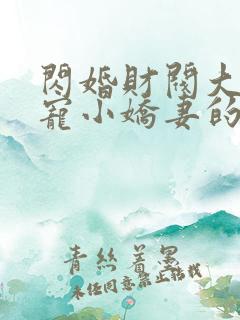 閃婚財閥大
寵小嬌妻的
青絲着墨
未经同意禁止转载